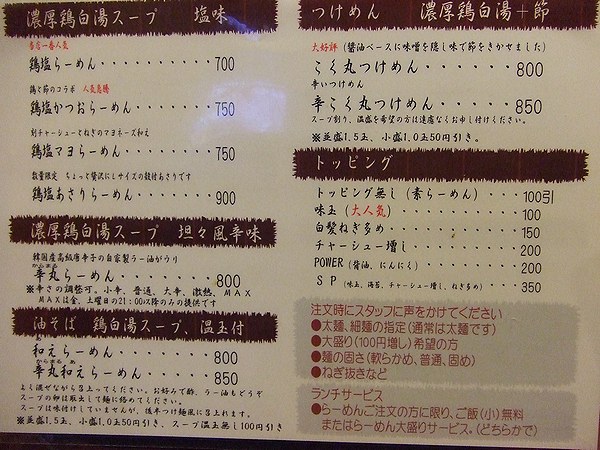 濃厚鶏白湯スープ 塩味
当店一番人気
鶏塩らーめん・・・・・・・・・・700
鶏と節のコラボ 人気急騰
鶏塩かつおらーめん・・・・・・・750
刻チャーシューとねぎのマヨネーズ和え
鶏塩マヨらーめん・・・・・・・・750
数量限定 ちょっと贅沢にLサイズの殻付あさりです
鶏塩あさりらーめん・・・・・・・900
濃厚鶏白湯スープ 坦々風辛味
韓国産高級唐辛子の自家製ラー油がウリ
からまる
辛丸らーめん・・・・・・・・・800
※辛さの調整可。小辛、普通、大辛、激熱、MAX
MAXは金、土曜日の21:00以降のみの提供です
油そば 鶏白湯スープ、温玉付
あ
和えらーめん・・・・・・・・・800
からまる あ
辛丸和えらーめん・・・・・・・850
よく混ぜながら召上ってください。お好みで酢、ラー油もどうぞ
スープの卵は豚出して麺に絡めてください。
スープは味付けしていませんが、後半つけ麺風に召上れます。
※並盛1.5玉、小盛1.0玉50円引き、スープ温玉無し100円引き
つけめん 濃厚鶏白湯+節
大好評(醤油ベースに味噌を隠し味で節をきかせました)
こく丸つけめん・・・・・・800
辛いつけめん
辛こく丸つけめん・・・・・850
スープ割り、温盛を希望の方は遠慮なくお申し付けください。
※並盛1.5玉、小盛1.0玉50円引き。
トッピング
トッピング無し(素らーめん)・・・・100引
味玉(大人気)・・・・・・・・・100
白髪ねぎ多め・・・・・・・・・・150
チャーシュー増し・・・・・・・・200
POWER(醤油、にんにく)・・・・・・200
SP(味玉、海苔、チャーシュー増し、ねぎ多め)・・・・350
注文時にスタッフに声をかけてください
●太麺、細麺の指定(通常は太麺です)
●大盛り(100円増し)希望の方
●麺の固さ(軟らかめ、普通、固め)
●ねぎ抜きなど
ランチサービス
●らーめんご注文の方に限り、ご飯(小)無料
またはらーめん大盛りサービス。(どちらかで)